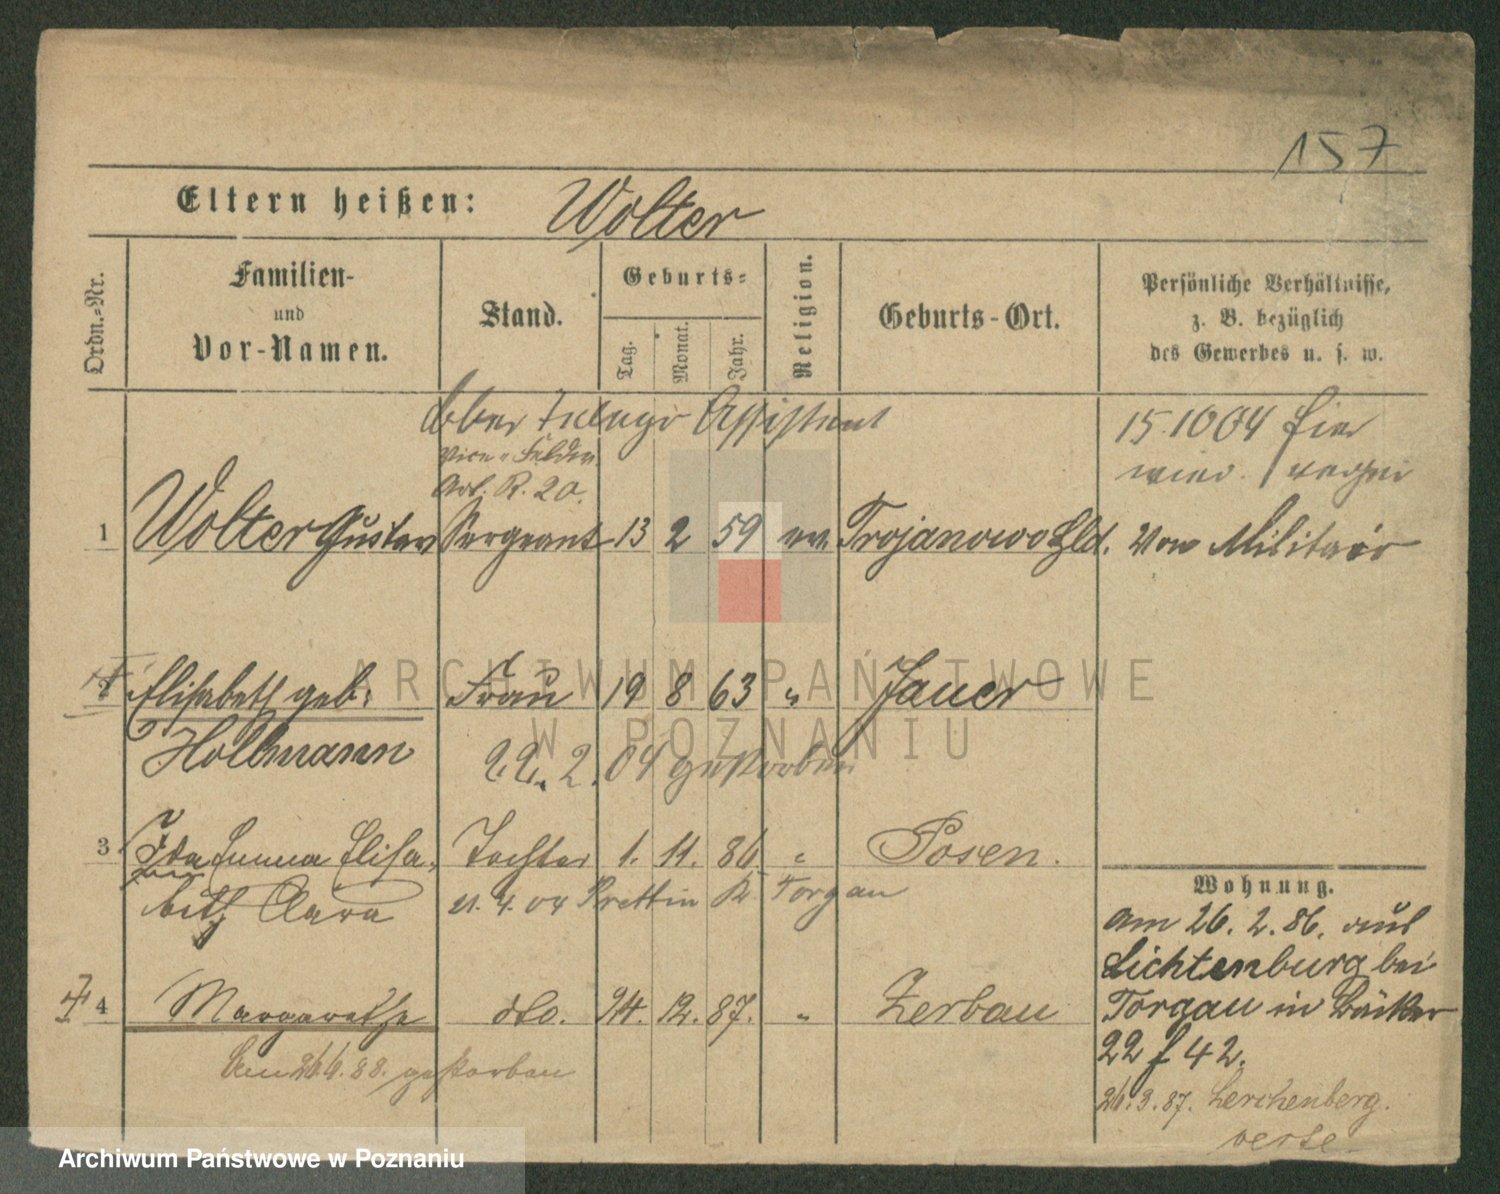 157
Eltern heißen: Wolter
Ordn.=Nr.
Familien-
und
Vor-Namen.
Stand.
Geburts=
Tag.
Monat.
Jahr.
Religion.
Geburts-Ort.
Persönliche Verhältnisse,
z. B. bezüglich
des Gewerbes u. s. w.
Ober Assistent
15.10 04 hier
Art. R. 20.
1 Wolter Gustav Sergeant 13 2 59 ev. Trojanowo Hld. Vom Militair
2 Elisabeth geb: Frau 19 8 63 " Jauer
Hollmann
22. 2. 04 gestorben
3 Ida Emma Elisa- Tochter 1. 11. 86 " Posen.
beth Clara
21. 4. 04 Prettin K Torgau
Wohnung.
am 26. 2. 86. aus
Lichtenburg bei
Torgau in Bäcker
22 f 42.
4 Margarethe dto. 24. 12. 87. " Zerbau
Am 26.6.88. gestorben
26.3.87. Lerchenberg.
verte
ARCHIWUM PAŃSTWOWE
W POZNANIU
Archiwum Państwowe w Poznaniu